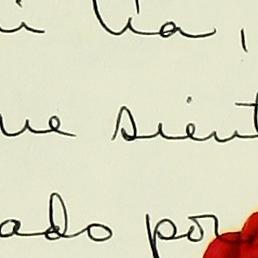 i tía,
ue sient
ado por